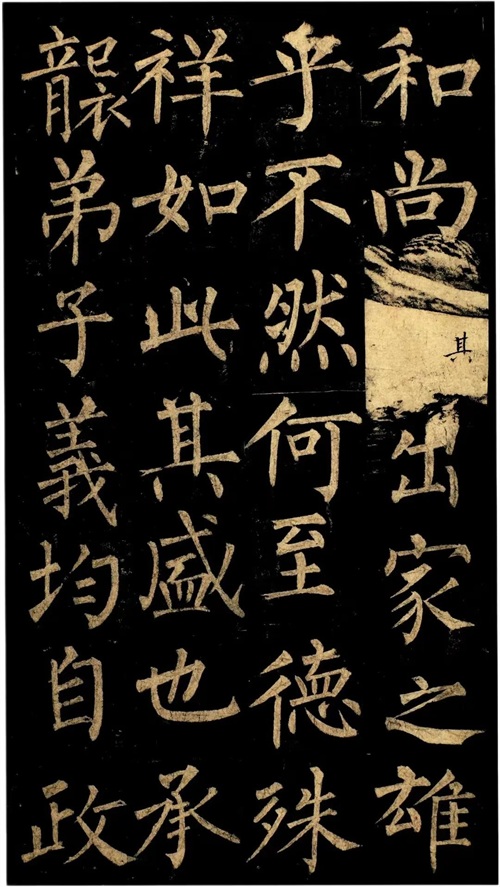 和尚其出家之雄
乎不然何至德殊
祥如此其盛也承
襲弟子義均自政